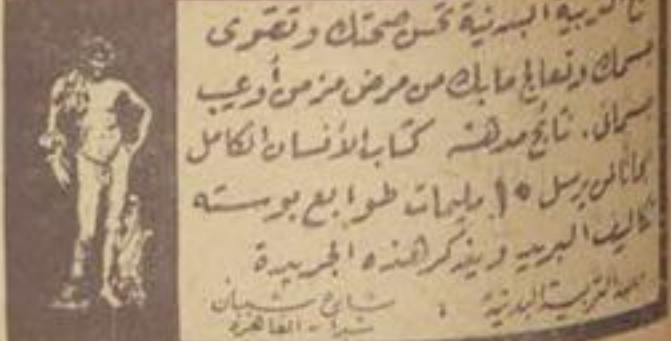 التربية البدنية تحسن صحتك وتقوى
جسمك وتعالج مابك من مرض مزمن أوعيب
جسمانى. نتائج مدهشة كتاب الأنسان الكامل
مجانا لمن يرسل ١٠ مليمات طوابع بوسته
تكاليف البريد ويذكر هذه الجريدة
التربية البدنية : شارع شيبان
شبرا القاهرة